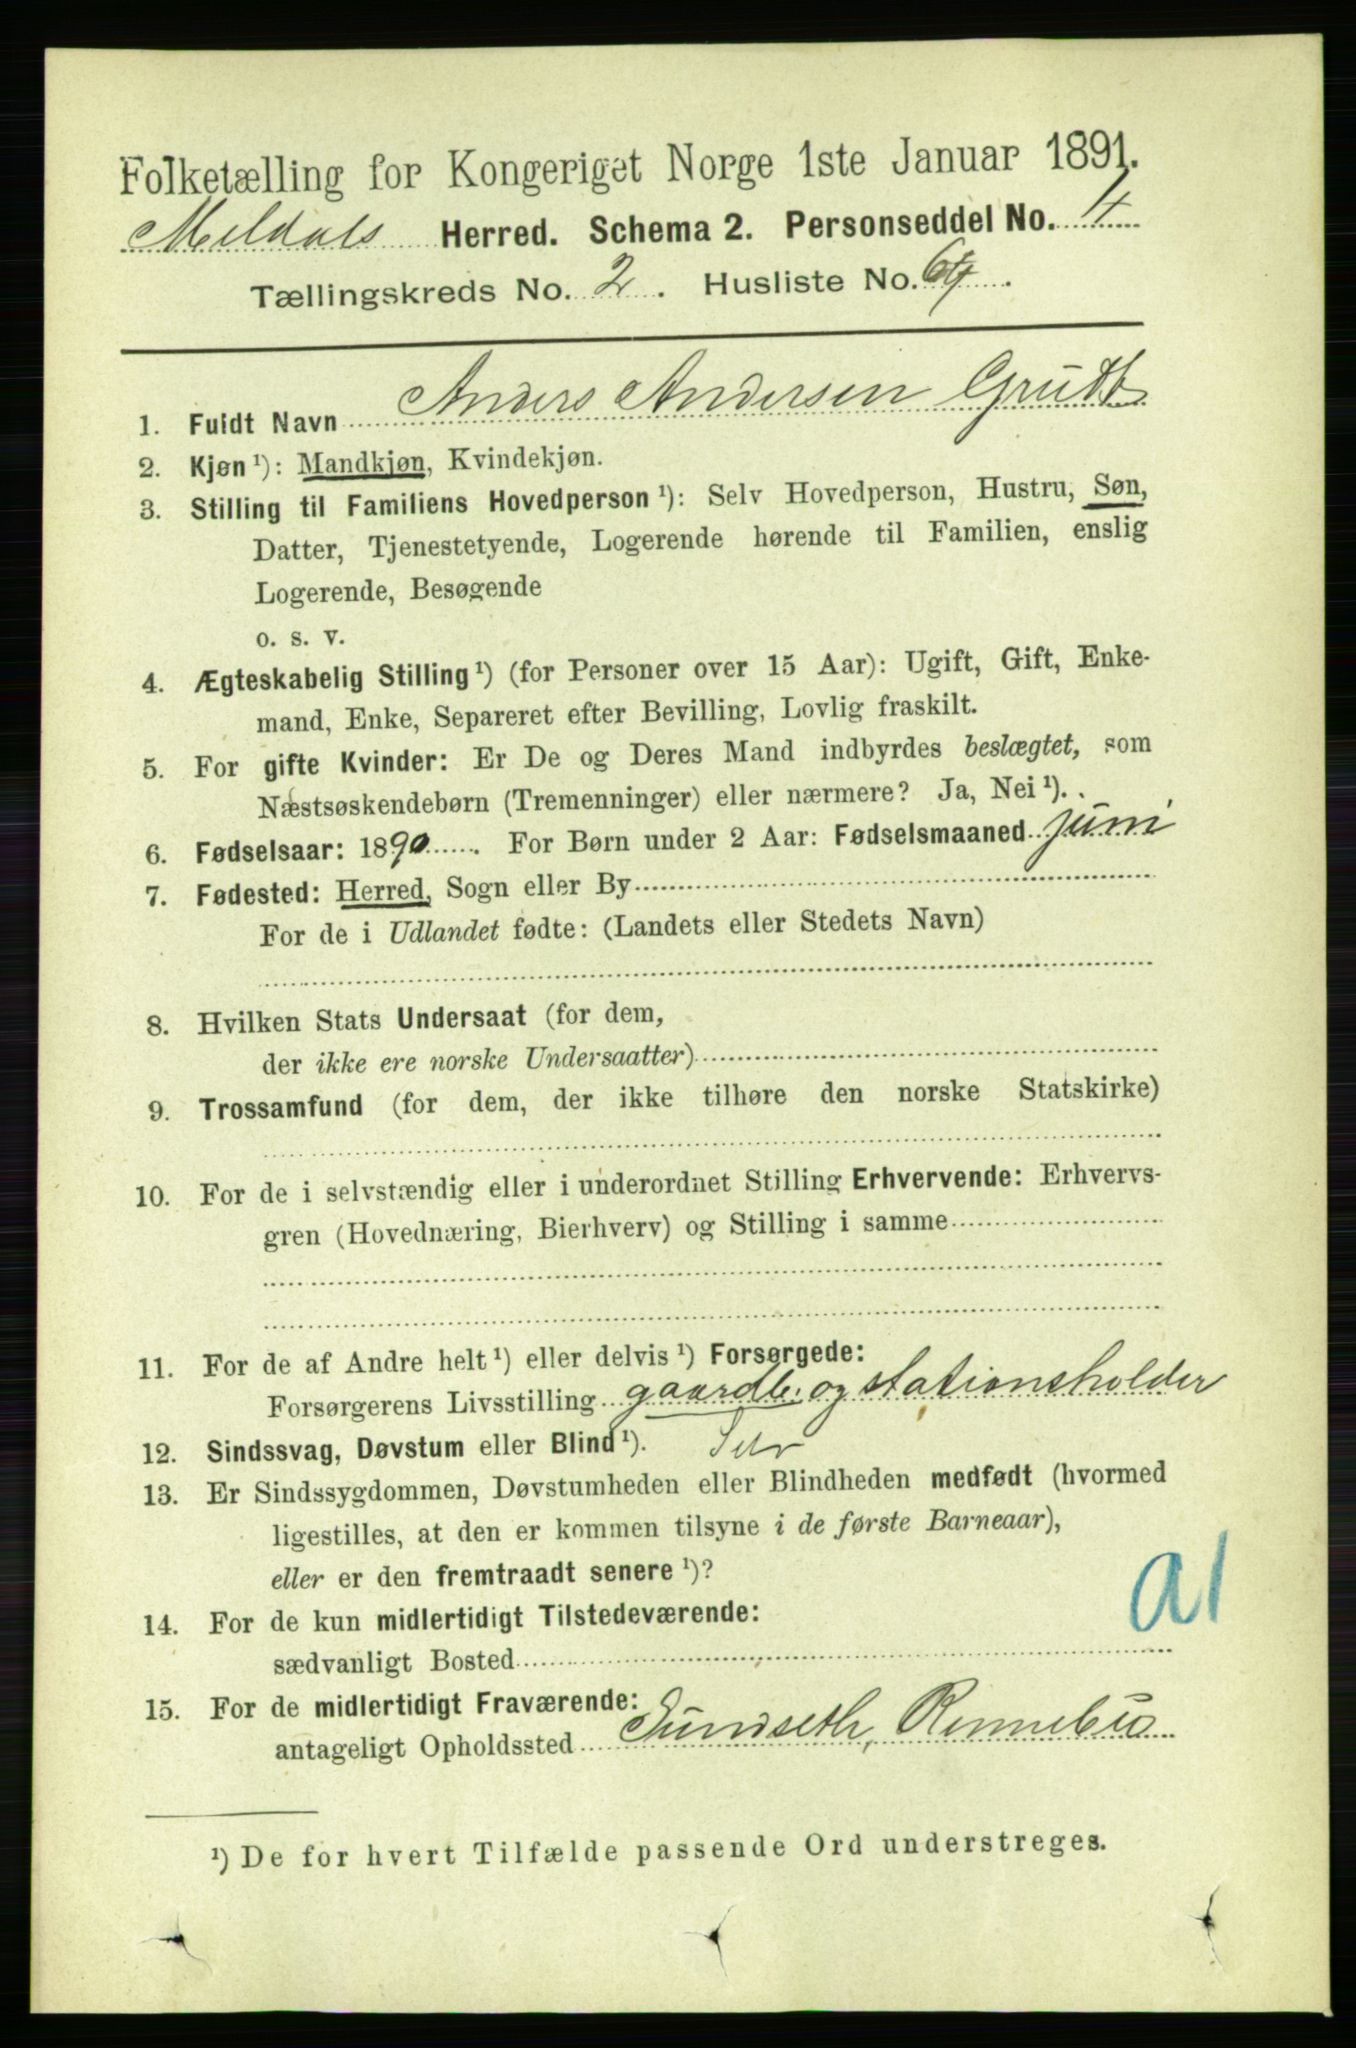 Folketælling for Kongeriget Norge 1ste Januar 1891.
Meldals Herred. Schema 2. Personseddel No. 4
Tællingskreds No. 2. Husliste No. 64.
1. Fuldt Navn Anders Andersen Grutt
2. Kjøn ¹): Mandkjøn, Kvindekjøn.
3. Stilling til Familiens Hovedperson ¹): Selv Hovedperson, Hustru, Søn,
Datter, Tjenestetyende, Logerende hørende til Familien, enslig
Logerende, Besøgende
o. s. v.
4. Ægteskabelig Stilling ¹) (for Personer over 15 Aar): Ugift, Gift, Enke-
mand, Enke, Separeret efter Bevilling, Lovlig fraskilt.
5. For gifte Kvinder: Er De og Deres Mand indbyrdes beslægtet, som
Næstsøskendebørn (Tremenninger) eller nærmere? Ja, Nei ¹).
6. Fødselsaar: 1890. For Børn under 2 Aar: Fødselsmaaned juni
7. Fødested: Herred, Sogn eller By
For de i Udlandet fødte: (Landets eller Stedets Navn)
8. Hvilken Stats Undersaat (for dem,
der ikke ere norske Undersaatter)
9. Trossamfund (for dem, der ikke tilhøre den norske Statskirke)
10. For de i selvstændig eller i underordnet Stilling Erhvervende: Erhvervs-
gren (Hovednæring, Bierhverv) og Stilling i samme
11. For de af Andre helt ¹) eller delvis ¹) Forsørgede:
Forsørgerens Livsstilling gaardb. og stationsholder
12. Sindssvag, Døvstum eller Blind ¹).
13. Er Sindssygdommen, Døvstumheden eller Blindheden medfødt (hvormed
ligestilles, at den er kommen tilsyne i de første Barneaar),
eller er den fremtraadt senere ¹)?
a1
14. For de kun midlertidigt Tilstedeværende:
sædvanligt Bosted
15. For de midlertidigt Fraværende:
antageligt Opholdssted Gundseth, Rennebu
¹) De for hvert Tilfælde passende Ord understreges.